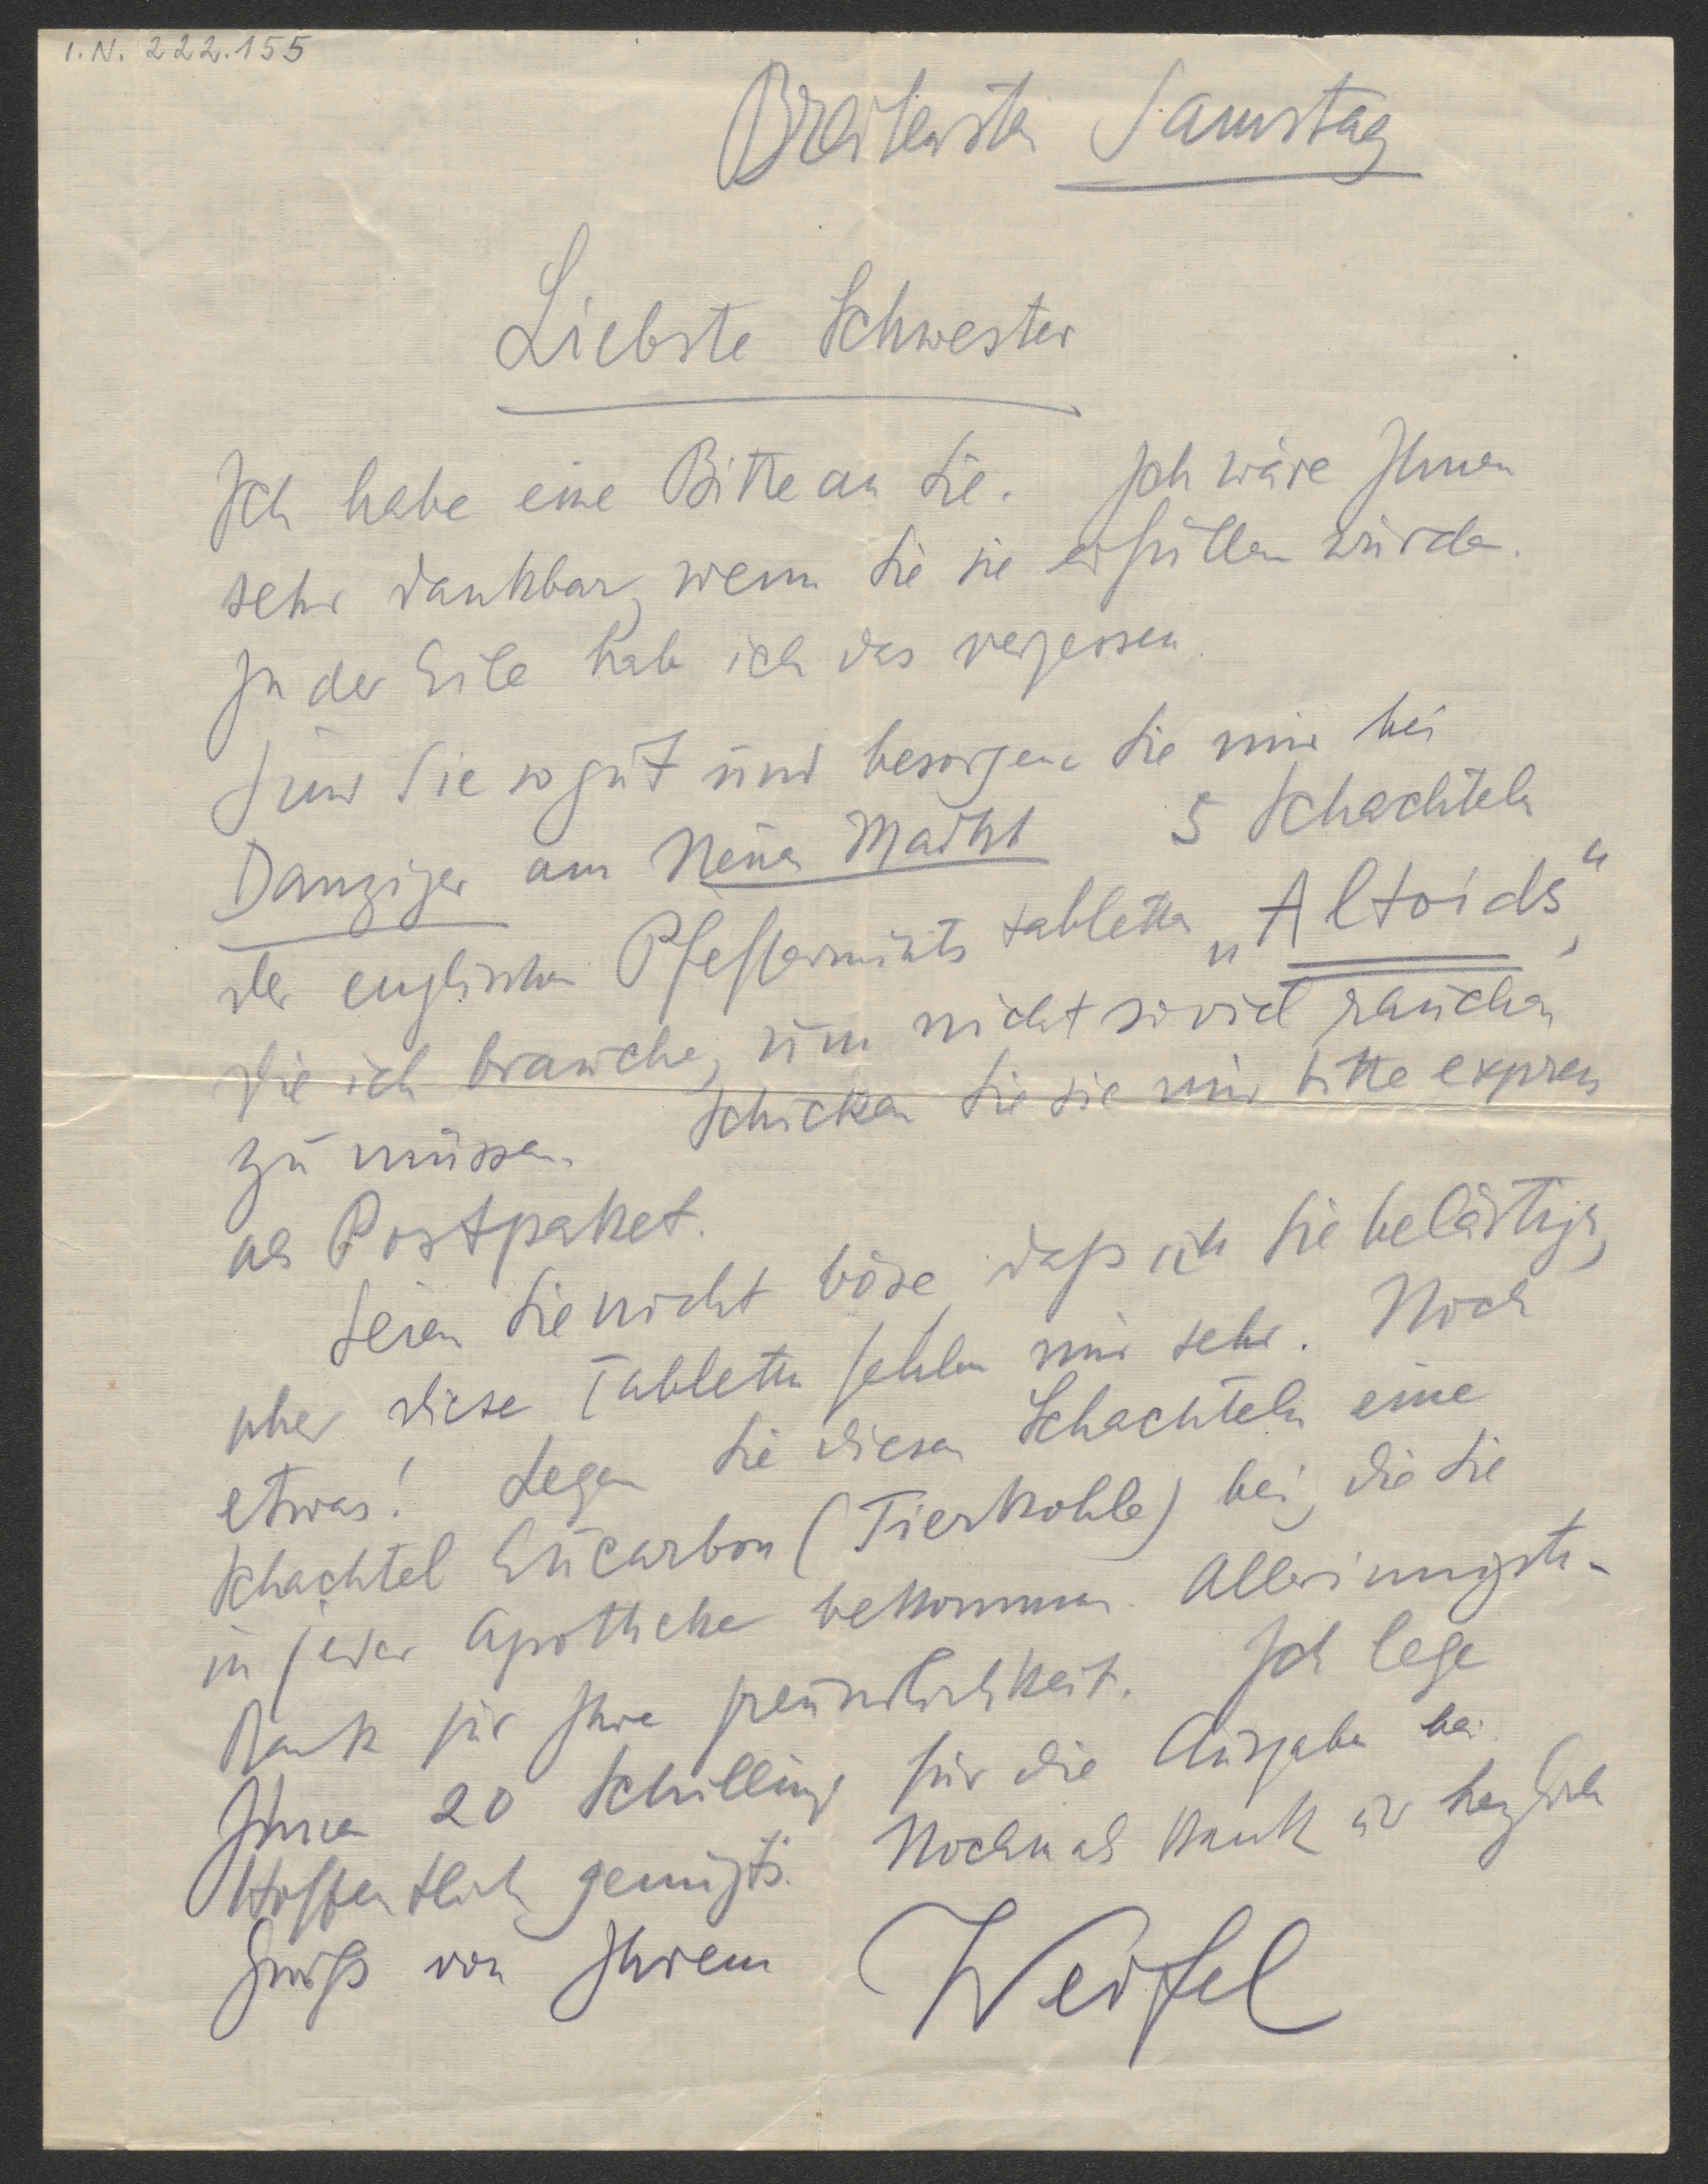 I.N. 222.155
Breitenstein Samstag
Liebste Schwester
Ich habe eine Bitte an Sie. Ich wäre Ihnen
sehr dankbar, wenn Sie sie erfüllen würden.
In der Eile hab ich das vergessen.
Sind Sie so gut und besorgen Sie mir bei
Danziger am Neuen Markt 5 Schachteln
der englischen Pfeffermintstabletten „Altoids“,
die ich brauche, um nicht soviel rauchen
zu müssen. Schicken Sie sie mir bitte expres
als Postpaket.
Seien Sie nicht böse, daß ich Sie belästige,
aber diese Tabletten fehlen mir sehr. Noch
etwas! Legen Sie diesen Schachteln eine
Schachtel Eucarbon (Tierkohle) bei, die Sie
in jeder Apotheke bekommen. Allerinnigsten
Dank für Ihre Freundlichkeit. Ich lege
Ihnen 20 Schilling für die Ausgaben bei.
Hoffentlich genügts. Nochmals Dank u herzlich
Gruß von Ihrem Werfel